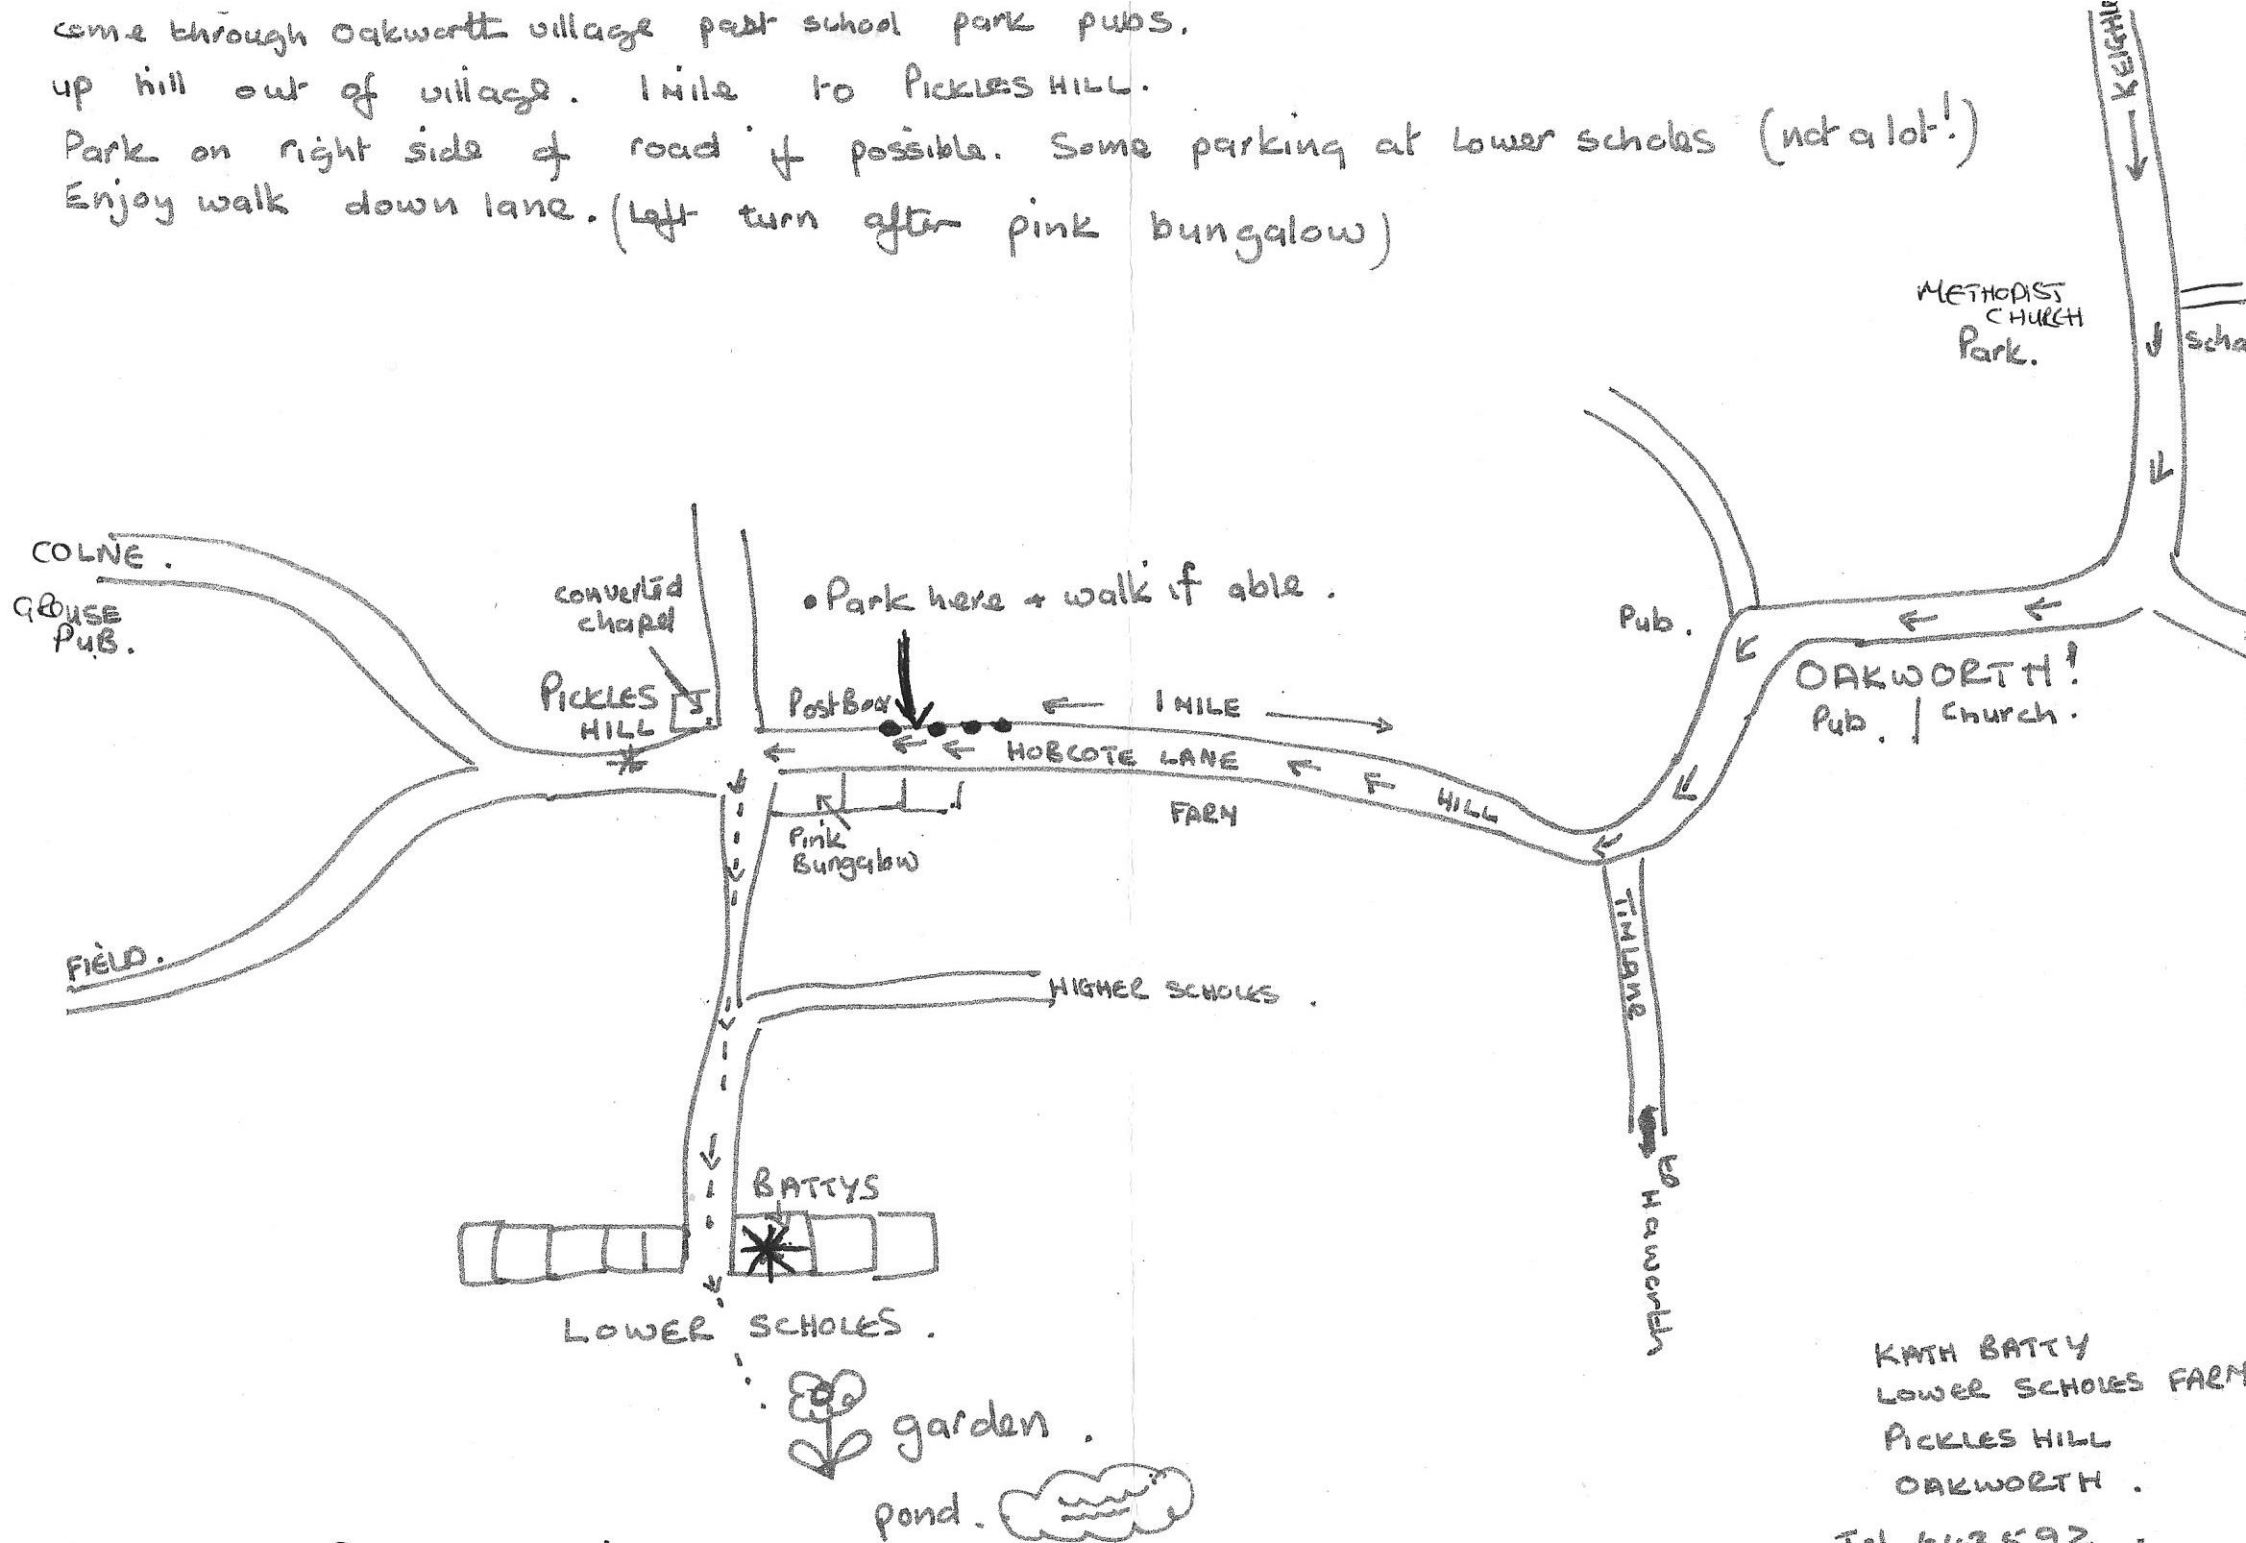 come through Oakworth village past school park pubs.
up hill out of village. 1 Mile to PICKLES HILL.
Park on right side of road if possible. Some parking at Lower Scholes (not a lot!)
Enjoy walk down lane. (Left turn after pink bungalow)
METHODIST
CHURCH
Park.
COLNE.
GROUSE
PUB.
converted
chapel
PICKLES
HILL
• Park here + walk if able.
Post Box
← 1 MILE →
HOBCOTE LANE
HILL
FARM
Pink
Bungalow
Pub.
OAKWORTH!
Pub. | Church.
TIM Lane
to Haworth
FIELD.
HIGHER SCHOLES.
BATTYS
LOWER SCHOLES.
garden.
pond.
KATH BATTY
LOWER SCHOLES FARM
PICKLES HILL
OAKWORTH.